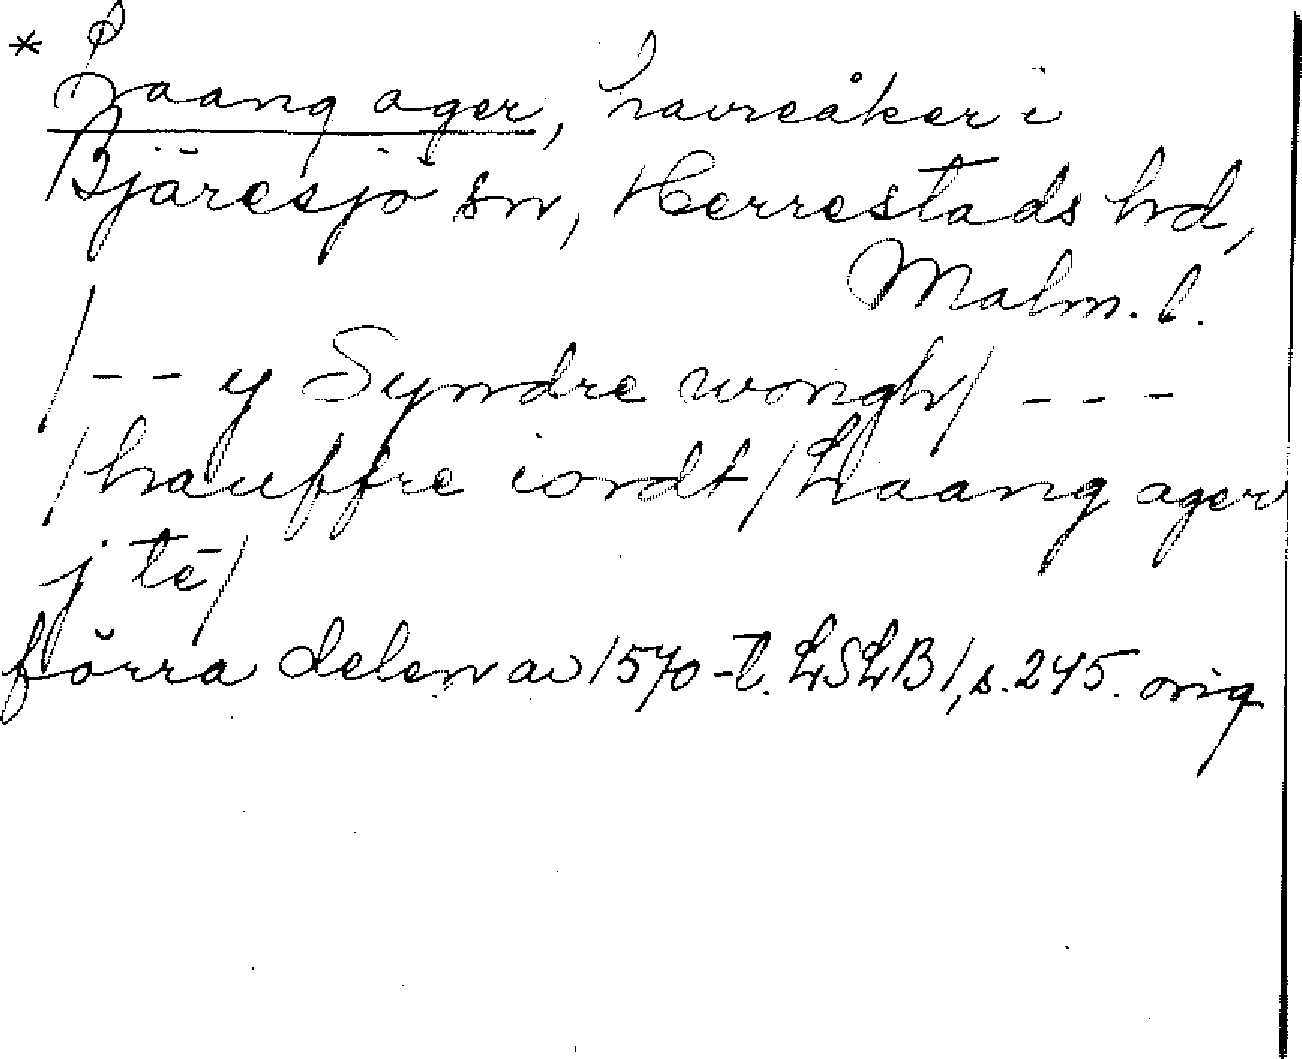 * Laang ager, havreåker i
Bjäresjö sn, Herrestads hd,
Malm. l.
/-- y Syndre wongh/ ---
/hauffre iordt/Laang ager
j tē/
förra delen av 1570-t. LSLB 1, s. 245. orig